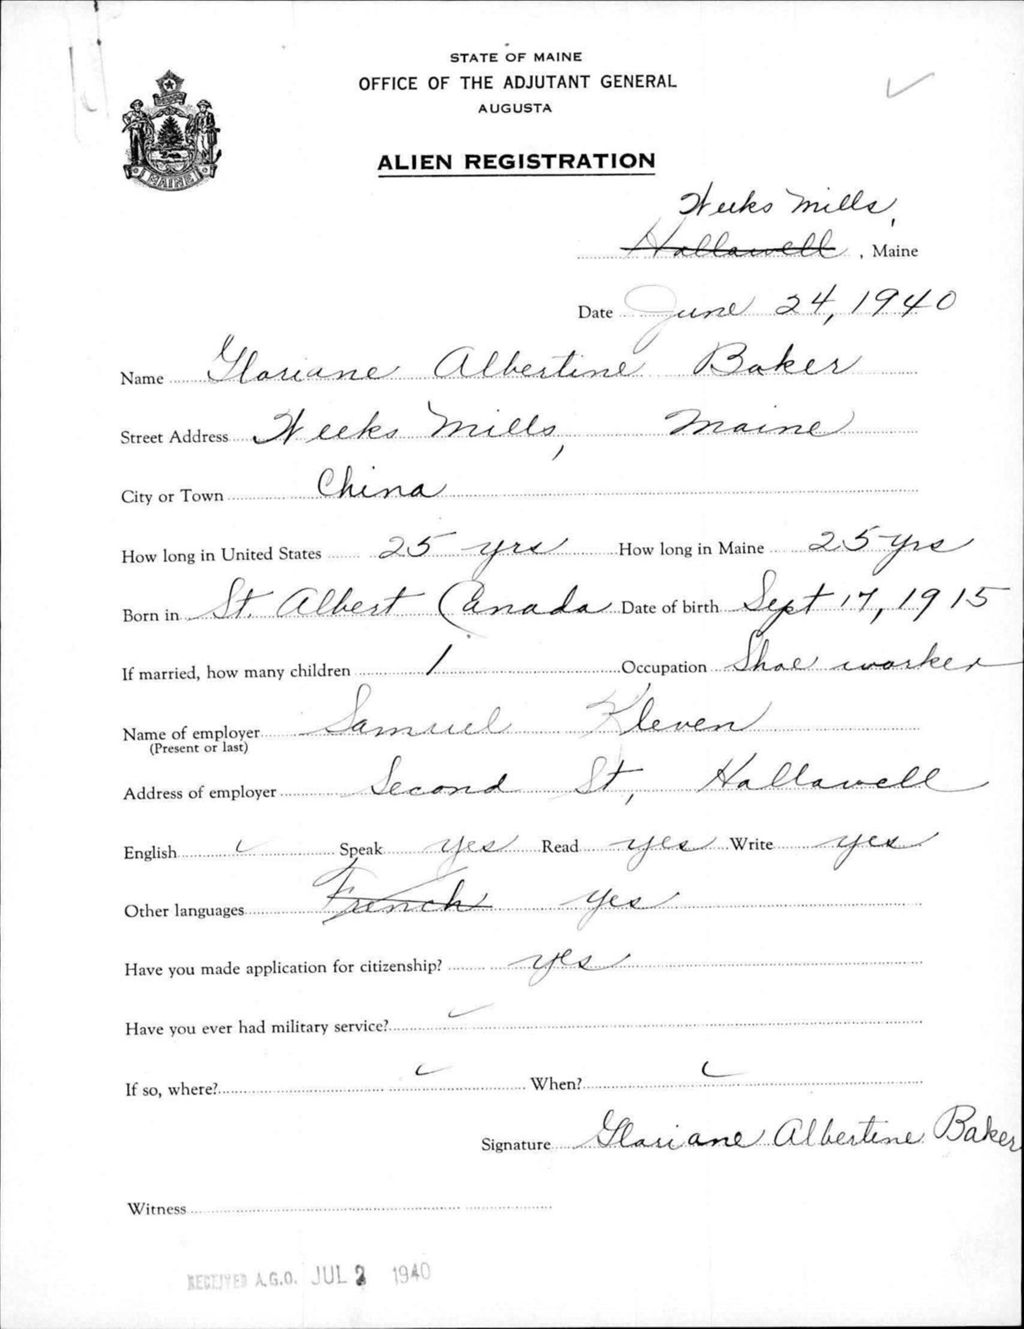 STATE OF MAINE
OFFICE OF THE ADJUTANT GENERAL
AUGUSTA
ALIEN REGISTRATION
MAINE
Weeks Mills,
Hallowell, Maine
Date June 24, 1940
Name Gloriane Albertine Baker
Street Address Weeks Mills, Maine
City or Town China
How long in United States 25 yrs How long in Maine 25 yrs
Born in St. Albert Canada Date of birth Sept 17, 1915
If married, how many children 1 Occupation Shoe worker
Name of employer Samuel Kleven
(Present or last)
Address of employer Second St, Hallowell
English ✓ Speak yes Read yes Write yes
Other languages French yes
Have you made application for citizenship? yes
Have you ever had military service? ✓
If so, where? ✓ When? ✓
Signature Gloriane Albertine Baker
Witness
RECEIVED A.G.O. JUL 2 1940